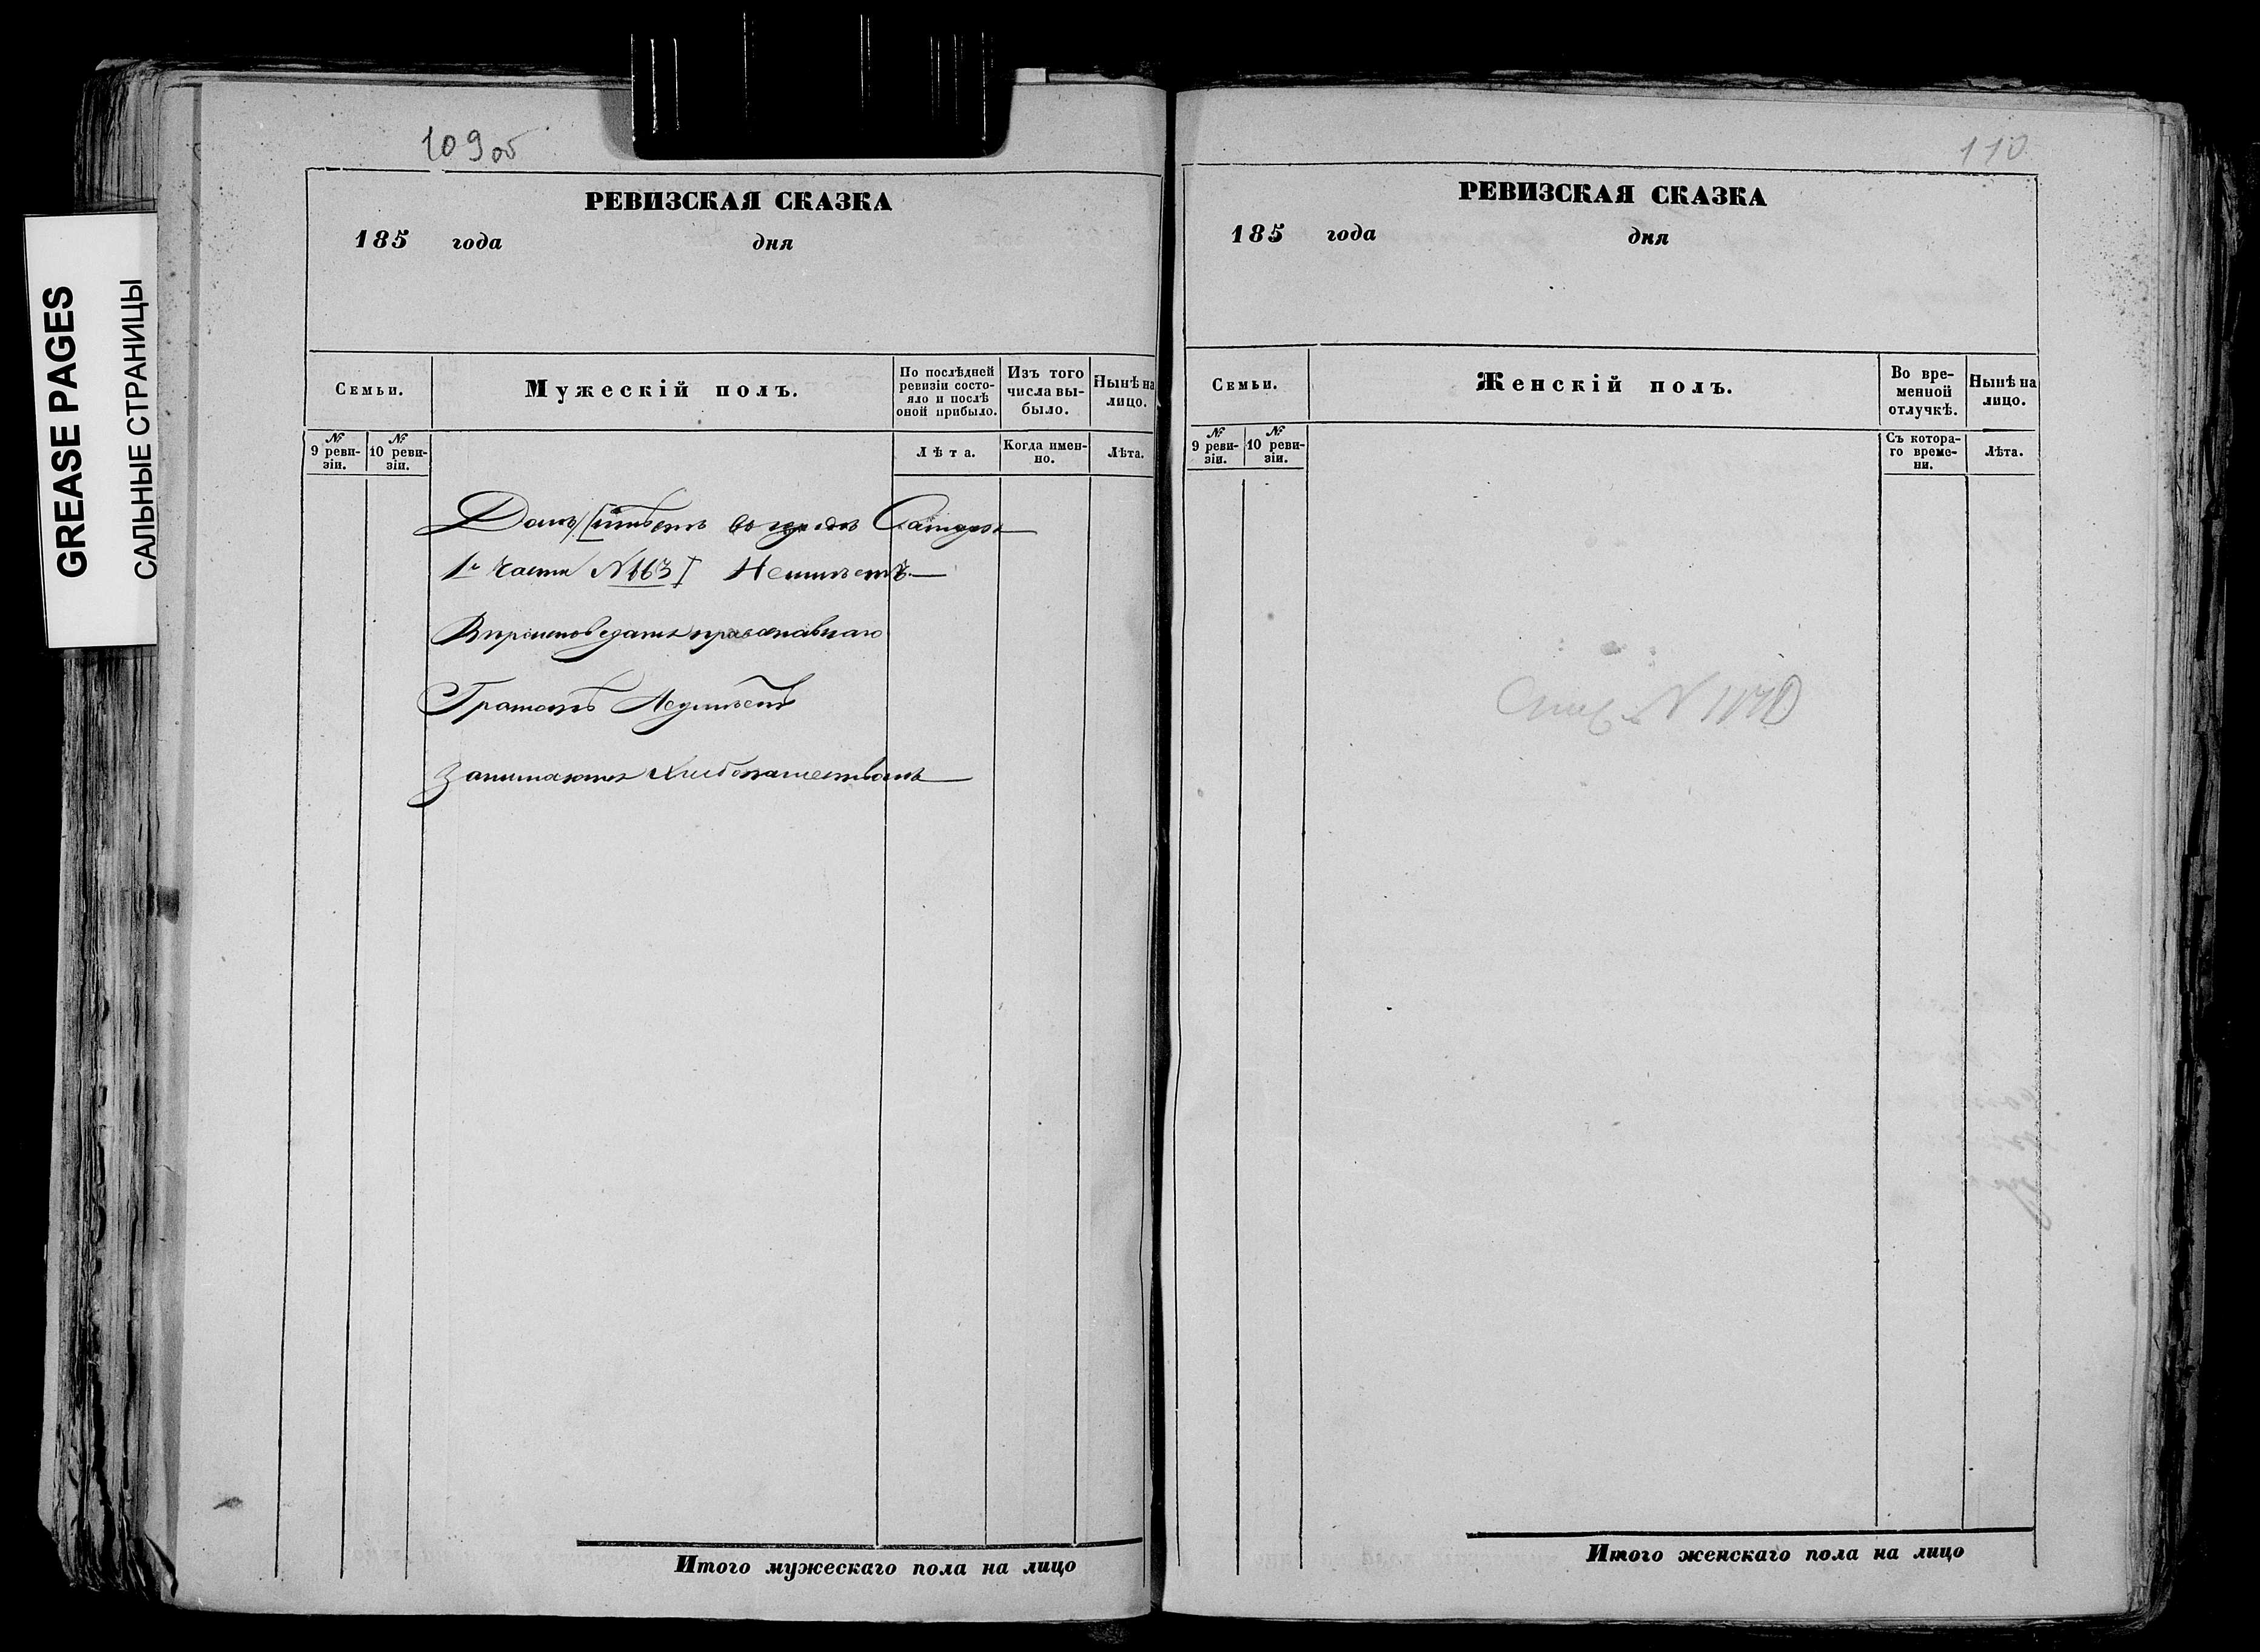 GREASE PAGES
САЛЬНЫЕ СТРАНИЦЫ
109об
РЕВИЗСКАЯ СКАЗКА
185 года дня
Семьи.
Мужескій полъ.
По послѣдней ревизіи состо-
яло и послѣ оной прибыло.
Изъ того числа вы-
было.
Нынѣ на лицо.
№ 9 реви-
зіи.
№ 10 реви-
зіи.
Лѣта.
Когда имен-
но.
Лѣта.
Домъ [имѣетъ въ городѣ
1й части №163] Неимѣетъ
Вѣроисповеданія православнаго
Грамотѣ Неумѣетъ
Занимается Хлебопашествомъ
Итого мужескаго пола на лицо
110
РЕВИЗСКАЯ СКАЗКА
185 года дня
Семьи.
Женскій полъ.
Во вре-
менной
отлучкѣ.
Нынѣ на
лицо.
№ 9 реви-
зіи.
№ 10 реви-
зіи.
Съ котора-
го време-
ни.
Лѣта.
Итого женскаго пола на лицо